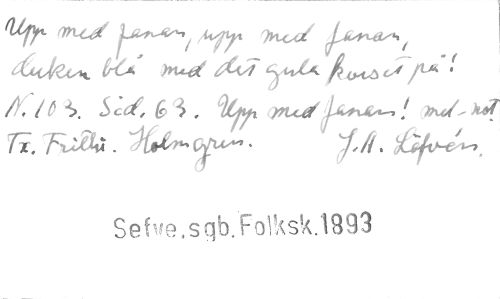 Upp med fanan, upp med fanan,
duken blå med det gula korset på!
N. 103. Sid. 63. Upp med fanan! med not.
Tx. Frith. Holmgren. J. A. Löfvén.
Sefve.sgb.Folksk.1893